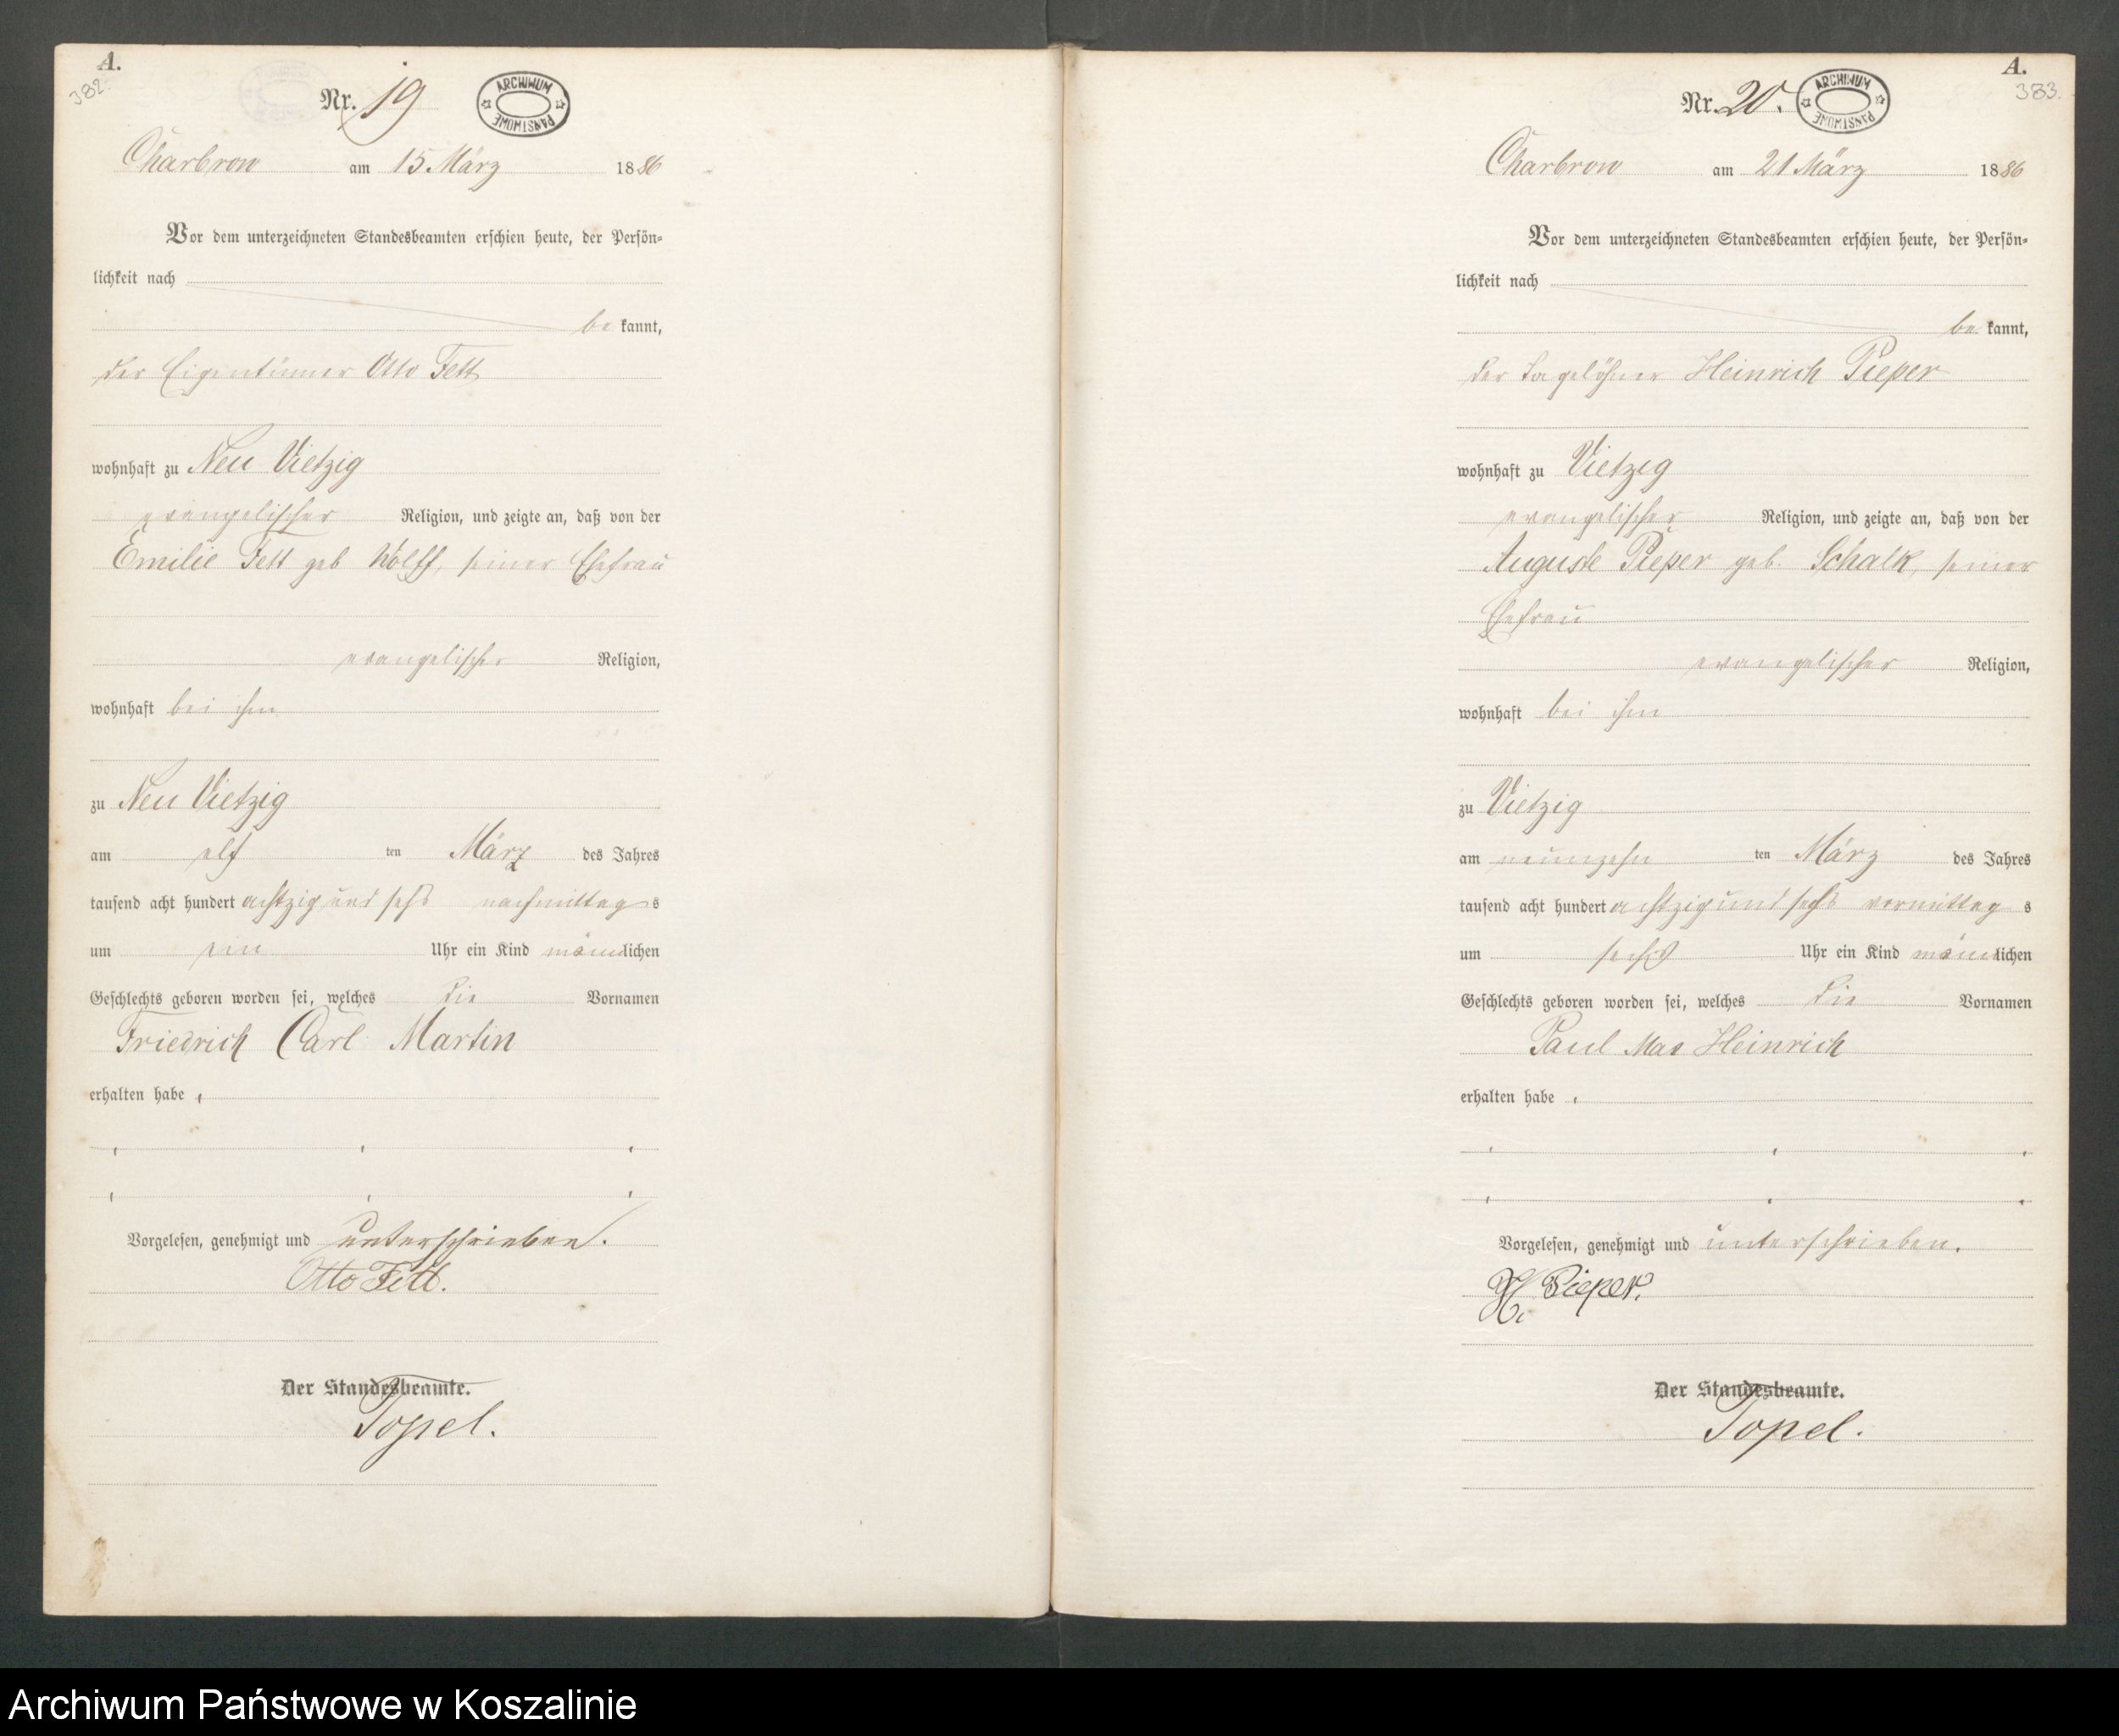 A.
382.
Nr. 19
ARCHIWUM PAŃSTWOWE
Charbrow am 15 März 1886
Vor dem unterzeichneten Standesbeamten erschien heute, der Persön-
lichkeit nach
be kannt,
der Eigentümer Otto Fett
wohnhaft zu Neu Vietzig
evangelischer Religion, und zeigte an, daß von der
Emilie Fett geb Wolff, seiner Ehefrau
evangelischer Religion,
wohnhaft bei ihm
zu Neu Vietzig
am elf ten März des Jahres
tausend acht hundert achtzig und sechs nachmittag s
um ein Uhr ein Kind männlichen
Geschlechts geboren worden sei, welches die Vornamen
Friedrich Carl Martin
erhalten habe
Vorgelesen, genehmigt und unterschrieben.
Otto Fett.
Der Standesbeamte.
Topel.
A.
383.
Nr. 20.
ARCHIWUM PAŃSTWOWE
Charbrow am 21 März 1886
Vor dem unterzeichneten Standesbeamten erschien heute, der Persön-
lichkeit nach
be kannt,
der Tagelöhner Heinrich Pieper
wohnhaft zu Vietzig
evangelischer Religion, und zeigte an, daß von der
Auguste Pieper geb. Schalk, seiner
Ehefrau
evangelischer Religion,
wohnhaft bei ihm
zu Vietzig
am neunzehn ten März des Jahres
tausend acht hundert achtzig und sechs vormittag s
um sechs Uhr ein Kind männlichen
Geschlechts geboren worden sei, welches die Vornamen
Paul Max Heinrich
erhalten habe
Vorgelesen, genehmigt und unterschrieben.
H. Pieper.
Der Standesbeamte.
Topel.
Archiwum Państwowe w Koszalinie